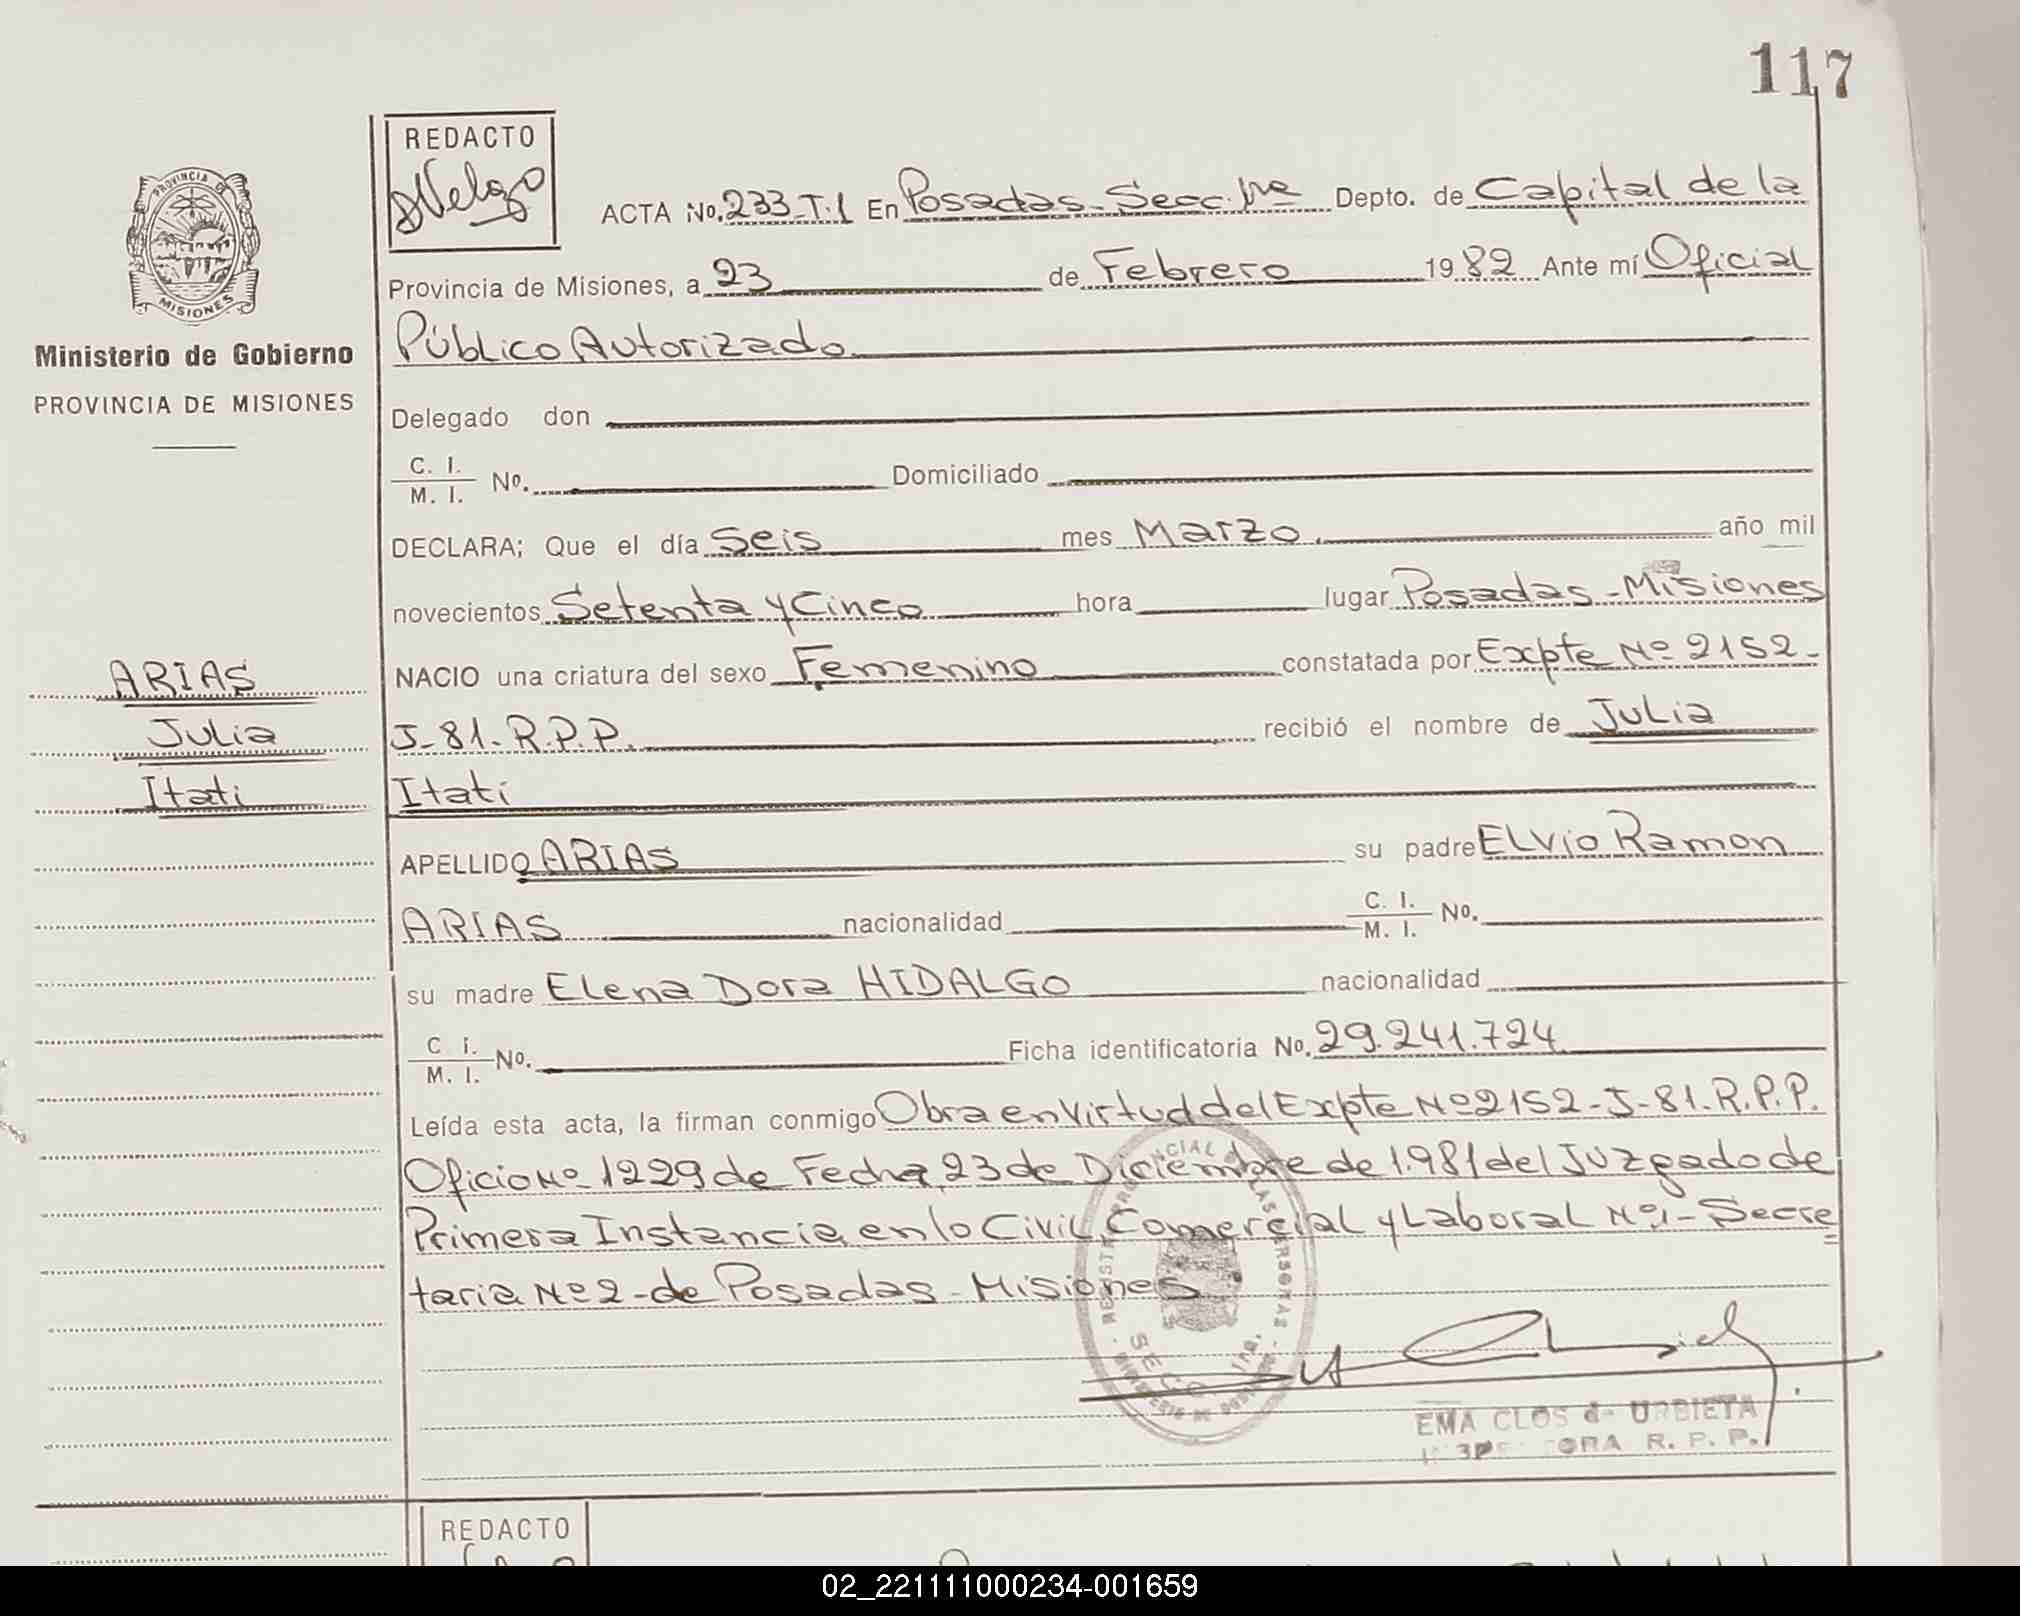 117
REDACTO
PROVINCIA DE
MISIONES
Ministerio de Gobierno
PROVINCIA DE MISIONES
ACTA No. 233-T.1 En Posadas-Secc. 1ra Depto. de Capital de la
Provincia de Misiones, a 23 de Febrero 1982 Ante mí Oficial
Público Autorizado
Delegado don
C. I. / M. I. No. Domiciliado
DECLARA; Que el día Seis mes Marzo año mil
novecientos Setenta y Cinco hora lugar Posadas-Misiones
NACIO una criatura del sexo Femenino constatada por Expte Nº 2152-
J-81.R.P.P. recibió el nombre de Julia
Itatí
APELLIDO ARIAS su padre ELvio Ramon
ARIAS nacionalidad C. I. / M. I. No.
su madre Elena Dora HIDALGO nacionalidad
C. I. / M. I. No. Ficha identificatoria No. 29.241.724
Leída esta acta, la firman conmigo Obra en Virtud del Expte Nº 2152-J-81.R.P.P.
Oficio Nº 1229 de Fecha 23 de Diciembre de 1.981 del Juzgado de
Primera Instancia en lo Civil, Comercial y Laboral Nº 1-Secre=
taria Nº 2-de Posadas-Misiones
ARIAS
Julia
Itati
SECC. 1ra.
EMA CLOS de URBIETA
R. P. P.
REDACTO
02_221111000234-001659